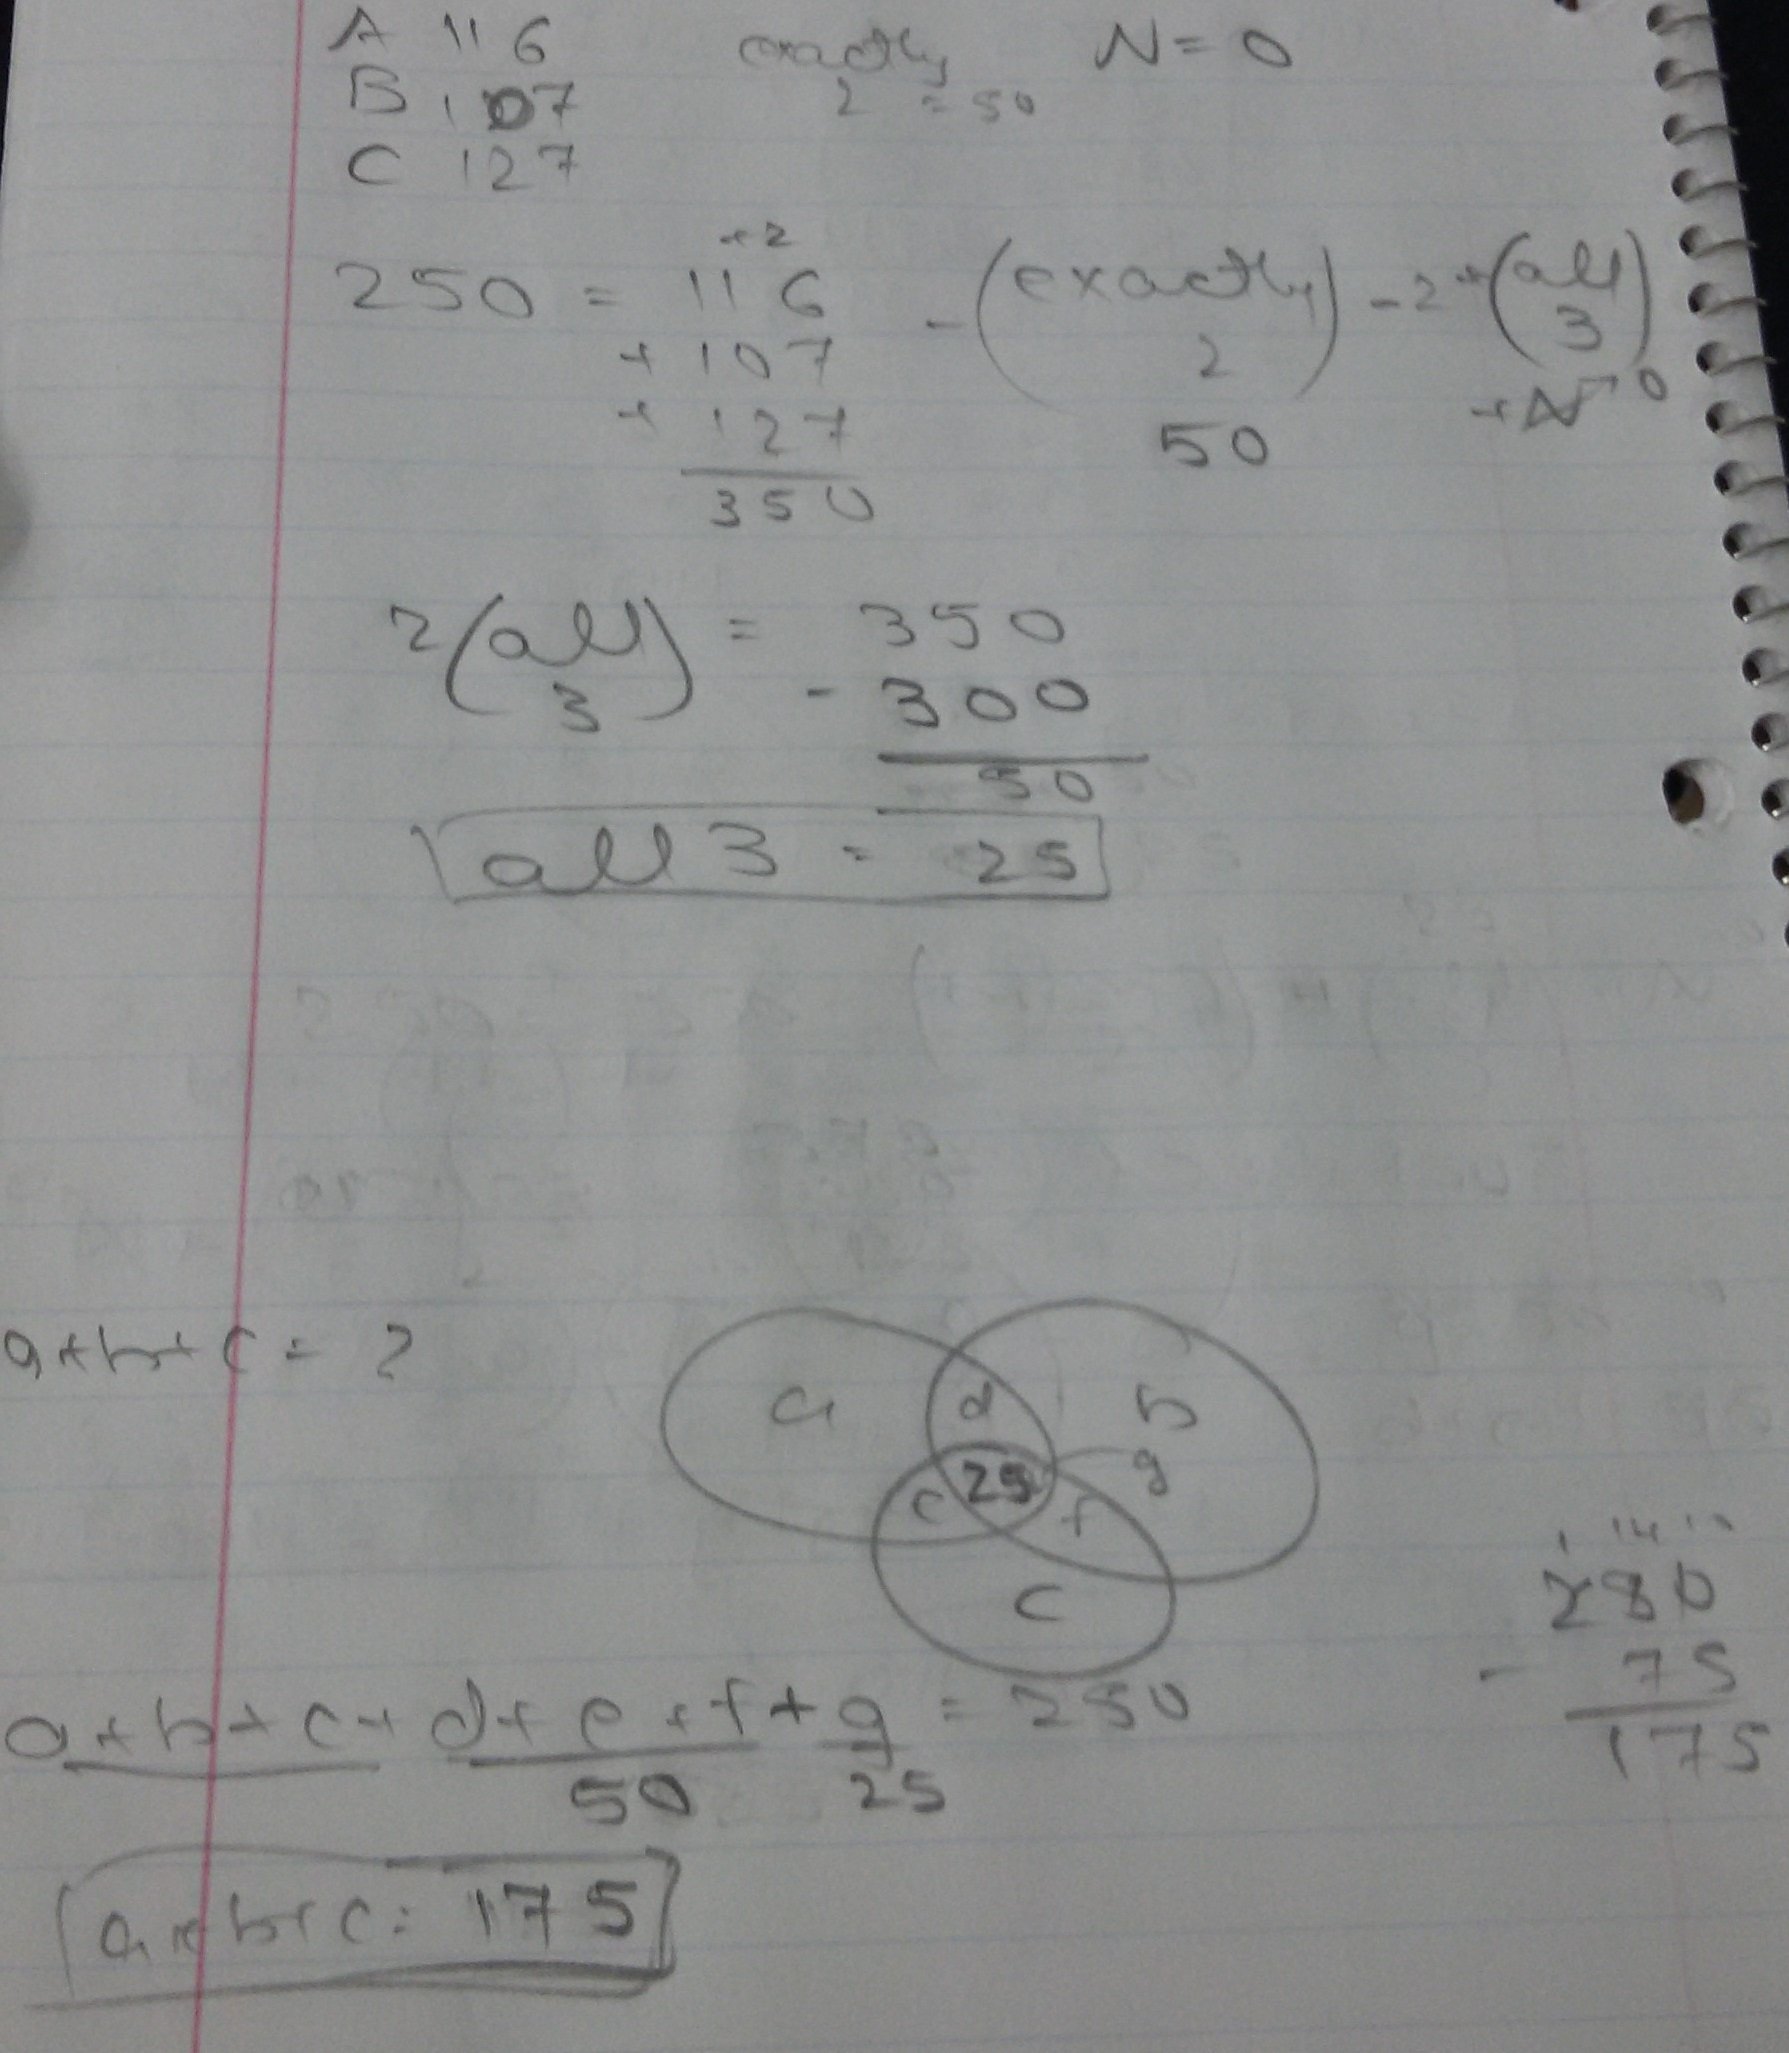 A 116
B 107
C 127
exactly
2 = 50
N = 0
+2
250 = 116 - (exactly 2) - 2*(all 3)
+ 107
+ 127
350
50
+N 0
2(all 3) = 350
- 300
50
all 3 = 25
a+b+c = ?
a
d
b
25
g
e
f
c
a+b+c+d+e+f+g = 250
50
25
250
- 75
175
a+b+c = 175